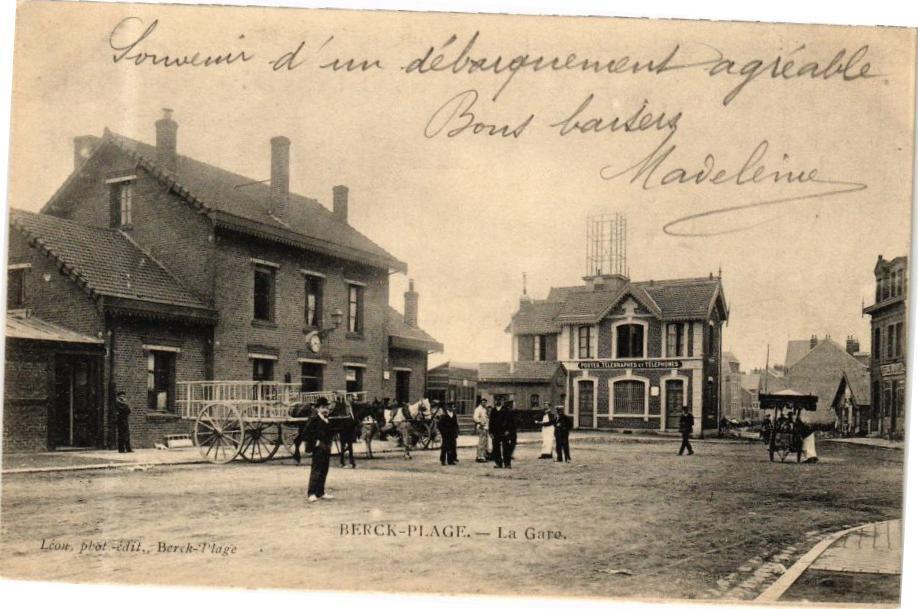 Souvenir d'un débarquement agréable
Bons baisers
Madeleine
POSTES, TÉLÉGRAPHES ET TÉLÉPHONES
BERCK-PLAGE. — La Gare.
Léon, phot-édit., Berck-Plage